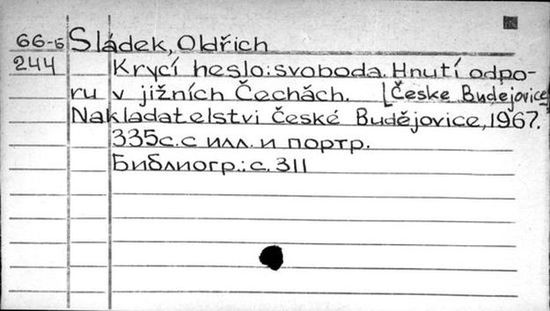 66-5 Sládek, Oldřich
244 Krycí heslo: svoboda. Hnutí odpo-
ru v jižních Čechách. [České Budejovice
Nakladatelstvi České Budějovice, 1967.
335с. с илл. и портр.
Библиогр.: с. 311